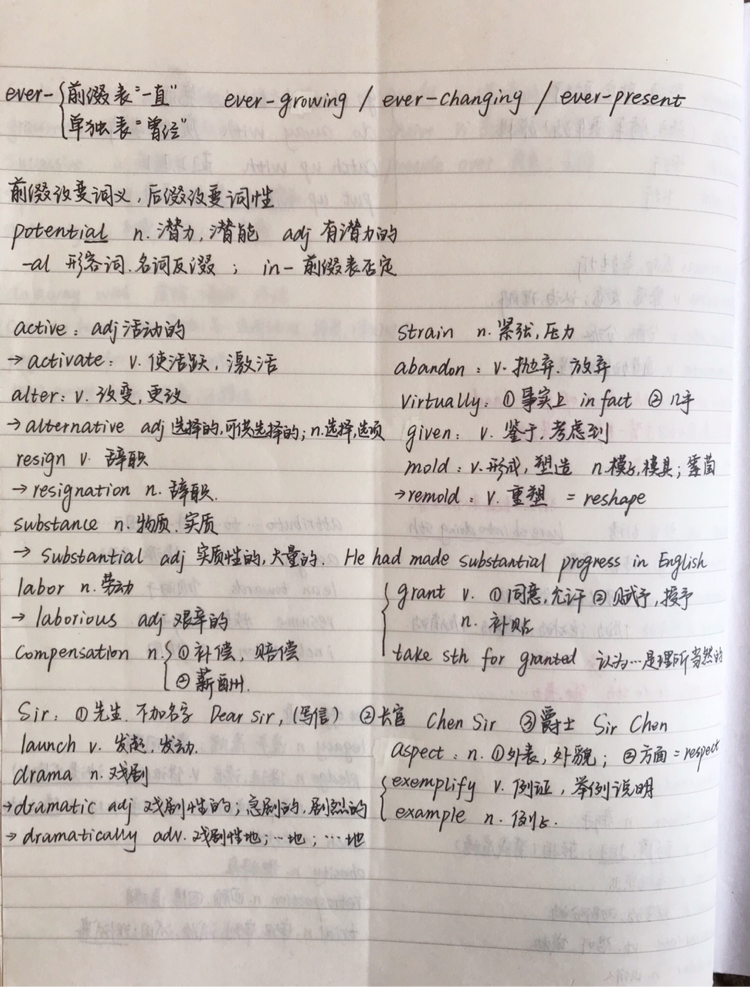 ever- { 前缀表"一直"   ever-growing / ever-changing / ever-present
单独表"曾经"
前缀改变词义，后缀改变词性
potential n. 潜力，潜能 adj 有潜力的
-al 形容词、名词后缀；in- 前缀表否定
active：adj 活动的
→ activate：v. 使活跃，激活
alter：v. 改变，更改
→ alternative adj 选择的，可供选择的；n.选择，选项
resign v. 辞职
→ resignation n. 辞职.
substance n. 物质、实质
→ substantial adj 实质性的，大量的. He had made substantial progress in English
labor n. 劳动
→ laborious adj 艰辛的
compensation n. { ①补偿，赔偿
②薪酬.
strain n. 紧张，压力
abandon：v. 抛弃、放弃
virtually：①事实上 in fact ②几乎
given：v. 鉴于，考虑到
mold：v. 形成，塑造 n.模子，模具；霉菌
→ remold：v. 重塑 = reshape
{ grant v. ①同意，允许 ②赋予，授予
n. 补贴
take sth for granted 认为…是理所当然的
Sir：①先生. 不加名字 Dear Sir,（写信） ②长官 Chen Sir ③爵士 Sir Chen
launch v. 发起，发动.
drama n. 戏剧
→ dramatic adj 戏剧性的；急剧的，剧烈的
→ dramatically adv. 戏剧性地；…地；…地
aspect：n. ①外表，外貌；②方面 = respect
{ exemplify v. 例证，举例说明
example n. 例子.